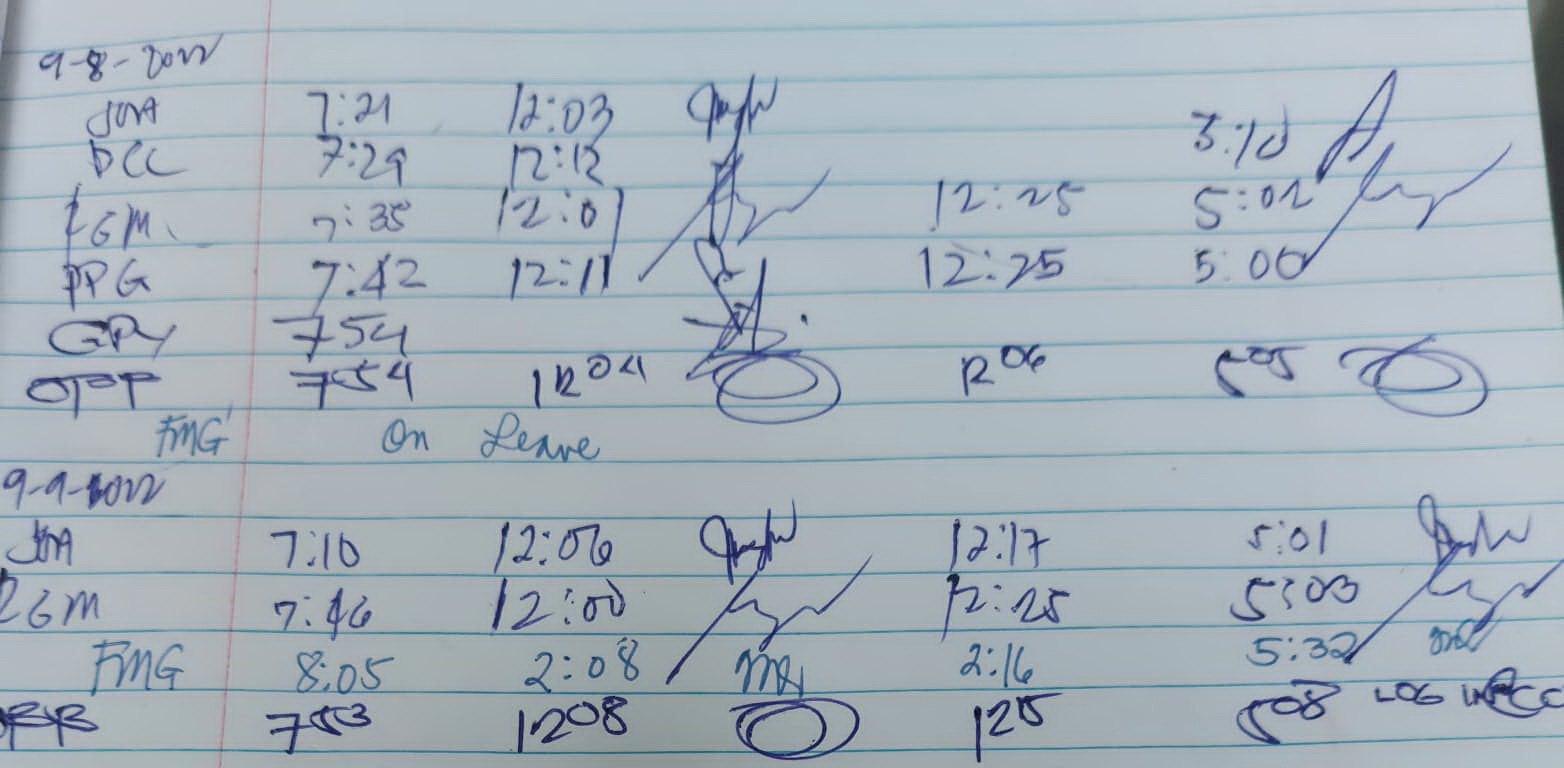 9-8-2022
JOA 7:21 12:03 3:10
DCC 7:29 12:12
LGM. 7:35 12:01 12:25 5:02
PPG 7:42 12:11 12:25 5:00
754
OTPP 754 1204 1206 505
FMG On Leave
9-9-2022
JOA 7:10 12:06 12:17 5:01
LGM 7:46 12:00 12:25 5:03
FMG 8:05 2:08 2:16 5:32
753 1208 125 508 LOG IN